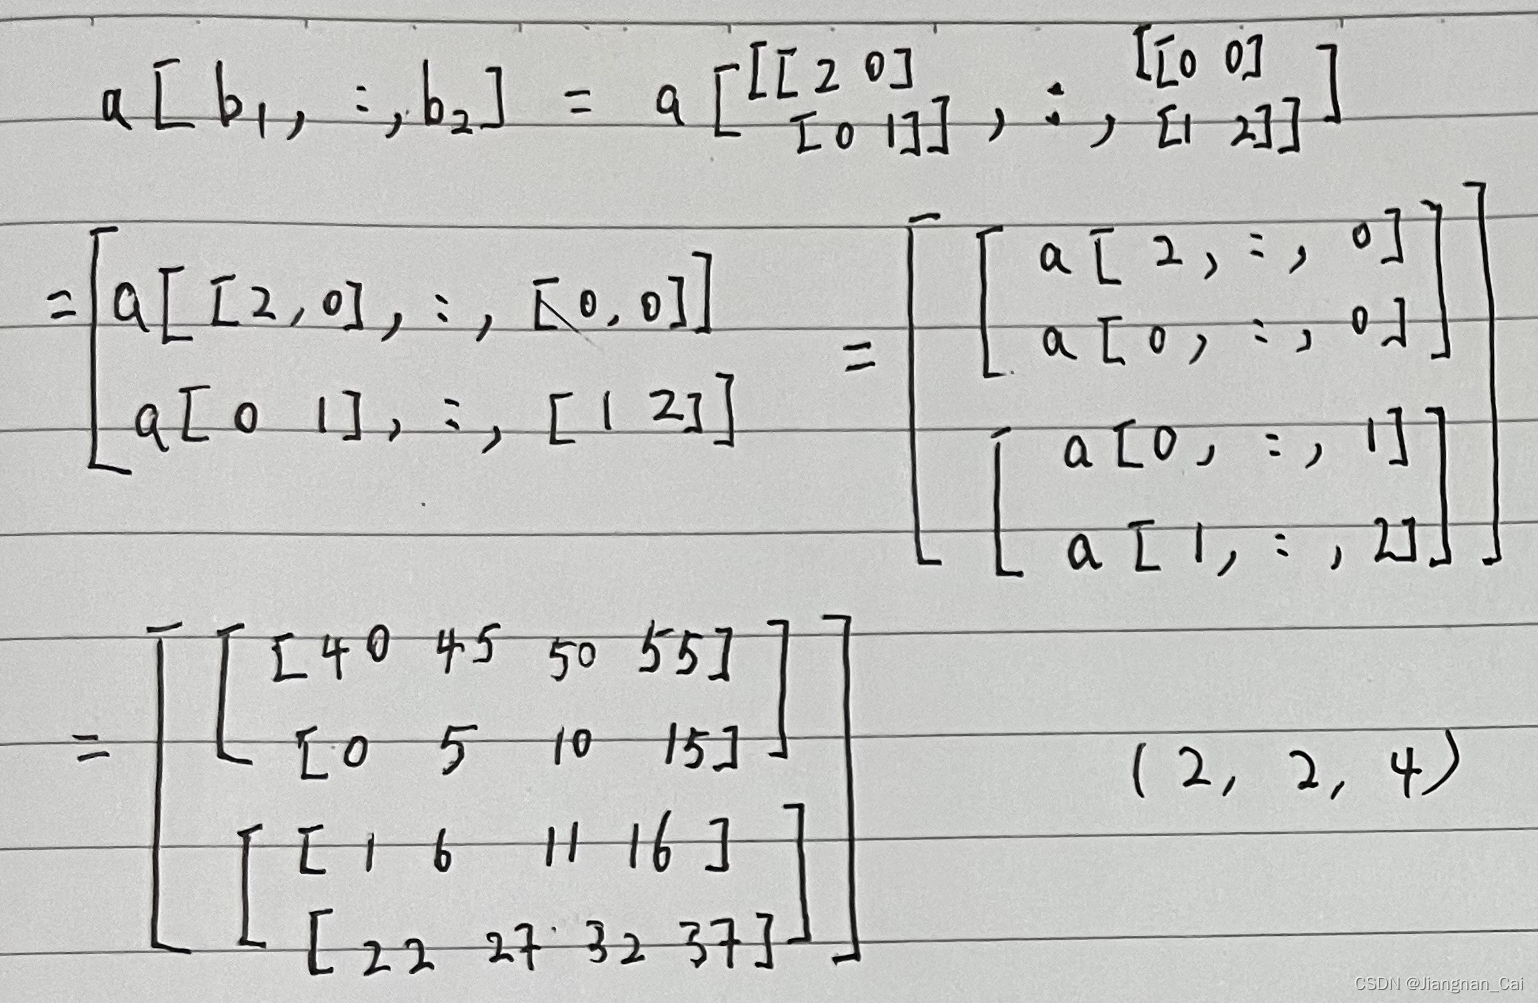 a[b₁, :, b₂] = a[[[2 0] [0 1]], :, [[0 0] [1 2]]]
=[a[[2,0], :, [0,0]]
a[0 1], :, [1 2]]
= [[a[2, :, 0]
a[0, :, 0]]
[a[0, :, 1]
a[1, :, 2]]]
= [[[40 45 50 55]
[0 5 10 15]]
[[1 6 11 16]
[22 27 32 37]]]
(2, 2, 4)
CSDN @Jiangnan_Cai